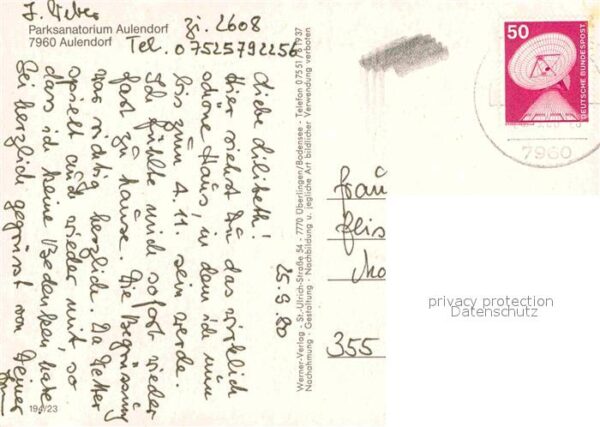 J. Weber
Parksanatorium Aulendorf
7960 Aulendorf
Zi. 2608
Tel. 07525792256
25.9.80
Liebe Lilibeth!
Hier siehst Du das wirklich
schöne Haus, in dem ich nun
bis zum 4.11. sein werde.
Ich fühlte mich sofort wieder
fast zu Hause. Die Begrüssung
war richtig herzlich. Da Wetter
spielt auch wieder mit, so
dass ich keine Bedenken habe.
Sei herzlich gegrüsst von Deiner
194/23
Werner-Verlag - St.-Ulrich-Straße 54 - 7770 Überlingen/Bodensee - Telefon 07551/61937
Nachahmung - Gestaltung - Nachbildung u. jegliche Art bildlicher Verwendung verboten
50
DEUTSCHE BUNDESPOST
7960
Frau
355
privacy protection
Datenschutz